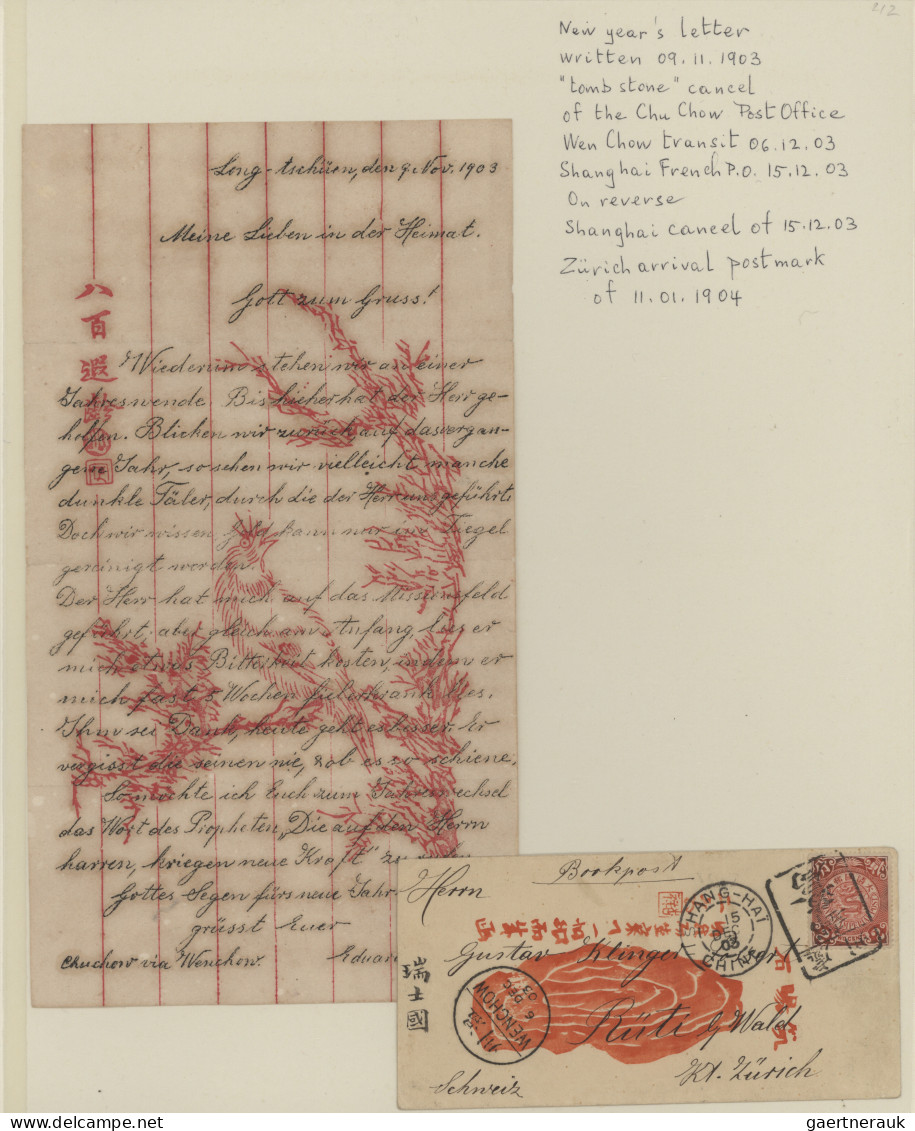 212
New year's letter
written 09.11.1903
"tomb stone" cancel
of the Chu Chow Post Office
Wen Chow transit 06.12.03
Shanghai French P.O. 15.12.03
On reverse
Shanghai cancel of 15.12.03
Zürich arrival postmark
of 11.01.1904
Long-tschüen, den 9. Nov. 1903
Meine Lieben in der Heimat.
Gott zum Gruss!
八百遐
Wiederum stehen wir an einer
Jahreswende. Bis hieher hat der Herr ge-
holfen. Blicken wir zurück auf das vergan-
gene Jahr, so sehen wir vielleicht manche
dunkle Täler, durch die der Herr uns geführt.
Doch wir wissen Gold kann nur im Tiegel
gereinigt werden.
Der Herr hat mich auf das Missionsfeld
geführt, aber gleich am Anfang liess er
mich etwas Bitterkeit kosten, indem er
mich fast 5 Wochen fieberkrank liess.
Ihm sei Dank, heute geht es besser. Er
vergisst die seinen nie, ob es so schiene.
So möchte ich Euch zum Jahreswechsel
das Wort des Propheten „Die auf den Herrn
harren, kriegen neue Kraft" zu
Gottes Segen fürs neue Jahr
grüsst Euer
Chuchow via Wenchow. Eduard
Herrn Bookpost
SHANG-HAI
15
DEC
03
CHINE
Gustav Klinger
瑞士國
WENCHOW
6 DEC 03
Rüti b/ Wald
Kt. Zürich
Schweiz
gaertnerauk